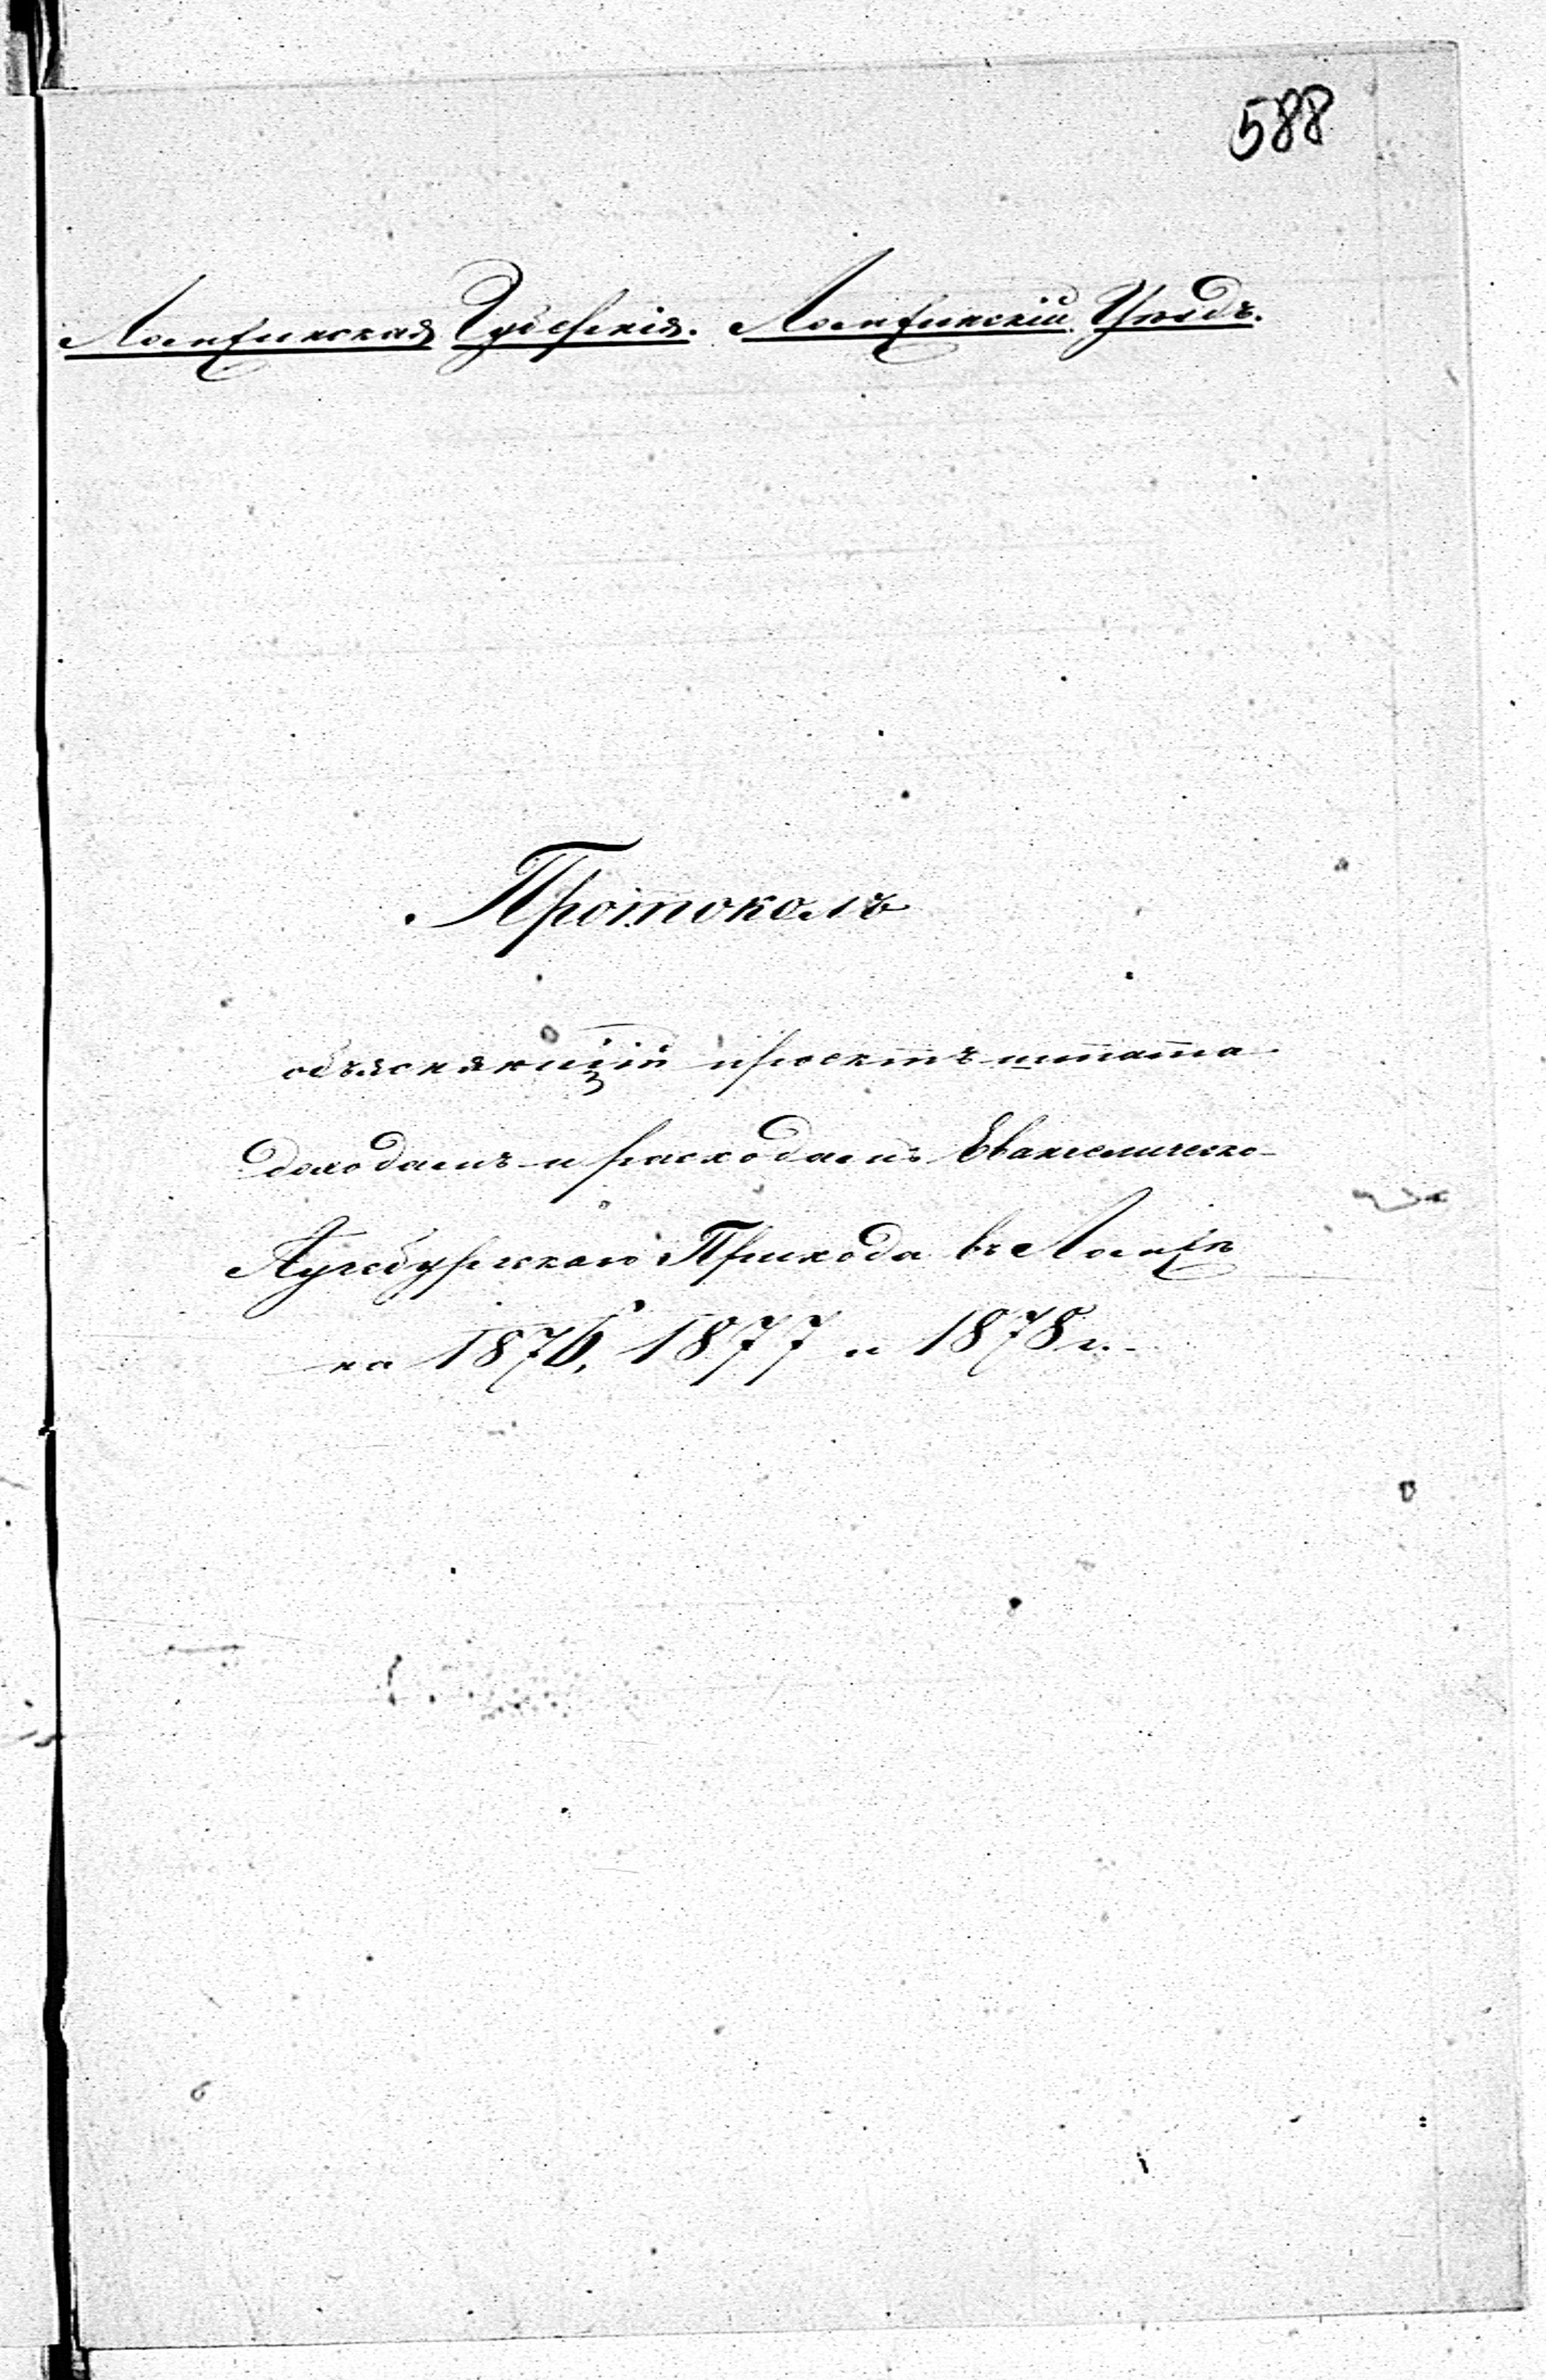 588
Ломжинская Губернія. Ломжинскій Уѣздъ.
Протоколъ
объясняющій проектъ штата
доходамъ и расходамъ Евангелическо-
Аугсбургскаго Прихода въ Ломжѣ
на 1876, 1877 и 1878 г.